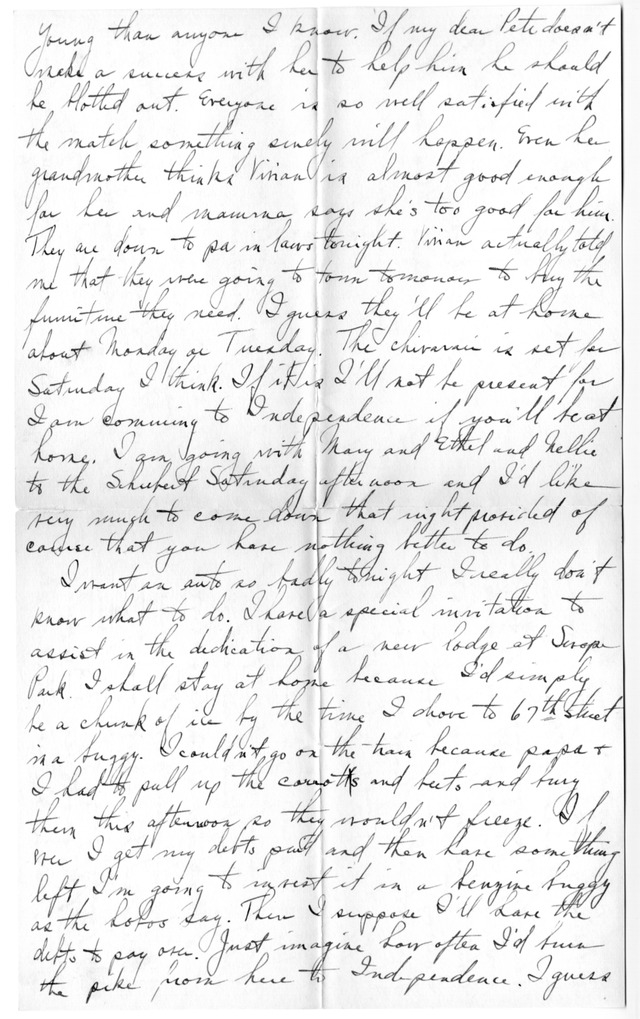 Young than anyone I know. If my dear Pete doesn't
make a success with her to help him he should
be blotted out. Everyone is so well satisfied with
the match something surely will happen. Even her
grandmother thinks Vivian is almost good enough
for her and mamma says she's too good for him.
They are down to pa in laws tonight. Vivian actually told
me that they were going to town tomorrow to buy the
furniture they need. I guess they'll be at home
about Monday or Tuesday. The chivarai is set for
Saturday I think. If it is I'll not be present for
I am comming to Independence if you'll be at
home. I am going with Mary and Ethel and Nellie
to the Shubert Saturday afternoon and I'd like
very much to come down that night provided of
course that you have nothing better to do.
I want an auto so badly tonight I really don't
know what to do. I have a special invitation to
assist in the dedication of a new lodge at Swope
Park. I shall stay at home because I'd simply
be a chunk of ice by the time I drove to 67th Street
in a buggy. I couldn't go on the train because papa &
I had to pull up the carrots and beets and bury
them this afternoon so they wouldn't freeze. If
ever I get my debts paid and then have something
left I'm going to invest it in a benzine buggy
as the hobos say. Then I suppose I'll have the
debts to pay over. Just imagine how often I'd burn
the pike from here to Independence. I guess